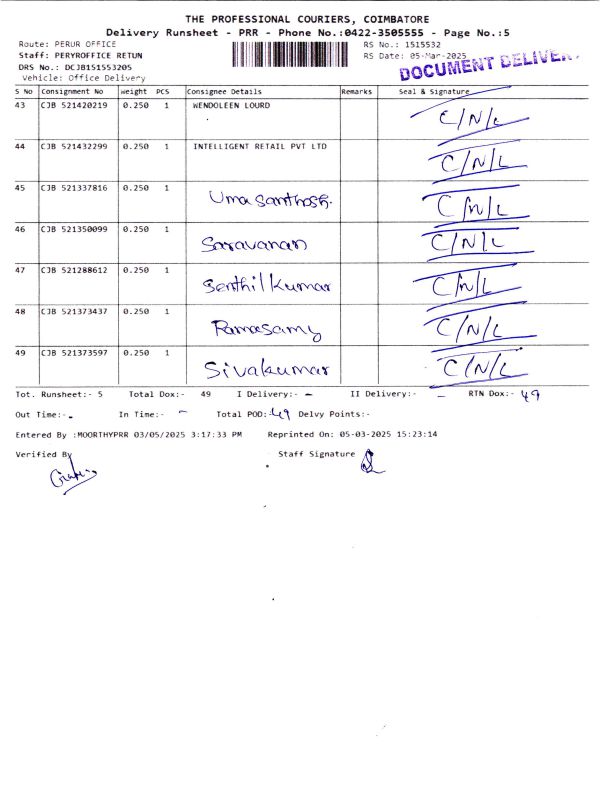 THE PROFESSIONAL COURIERS, COIMBATORE
Delivery Runsheet - PRR - Phone No.:0422-3505555 - Page No.:5
Route: PERUR OFFICE RS No.: 1515532
Staff: PERYROFFICE RETUN RS Date: 05-Mar-2025
DRS No.: DCJB151553205
Vehicle: Office Delivery
DOCUMENT DELIVER
S No Consignment No Weight PCS Consignee Details Remarks Seal & Signature
43 CJB 521420219 0.250 1 WENDOLEEN LOURD C/N/L
44 CJB 521432299 0.250 1 INTELLIGENT RETAIL PVT LTD C/N/L
45 CJB 521337816 0.250 1 Uma Santhosh. C/N/L
46 CJB 521350099 0.250 1 Saravanan C/N/L
47 CJB 521288612 0.250 1 Senthil Kumar C/N/L
48 CJB 521373437 0.250 1 Ramasamy C/N/L
49 CJB 521373597 0.250 1 Sivakumar C/N/L
Tot. Runsheet:- 5 Total Dox:- 49 I Delivery:- - II Delivery:- - RTN Dox:- 49
Out Time:- - In Time:- - Total POD:- 49 Delvy Points:-
Entered By :MOORTHYPRR 03/05/2025 3:17:33 PM Reprinted On: 05-03-2025 15:23:14
Verified By Staff Signature